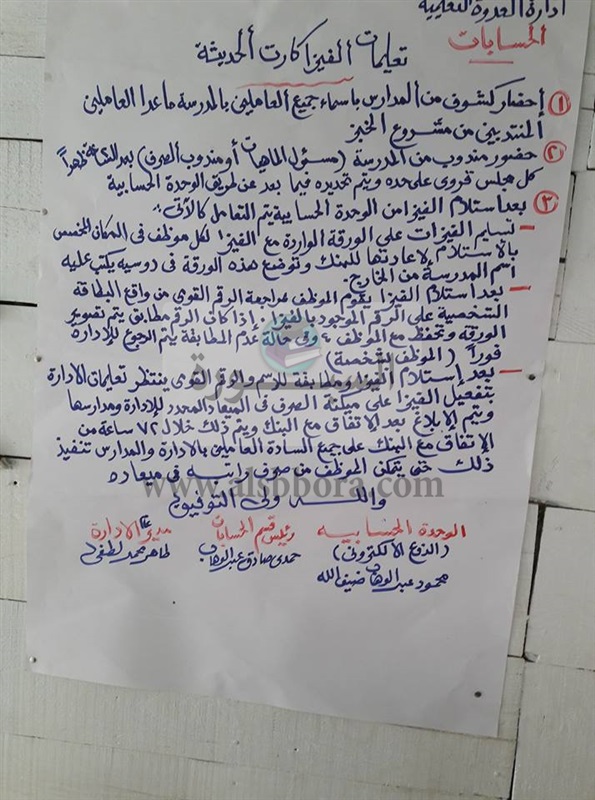 ادارة العدوة التعليمية
الحسابات
تعليمات الفيزا كارت الحديثة
① إحضار كشوف من المدارس باسماء جميع العاملين بالمدرسة ماعدا العاملين
المنتدبين من مشروع الخبز
② حضور مندوب من المدرسة (مسئول الماهيات أو مندوب الصرف) بعد الثانية ظهراً
كل مجلس قروى على حده ويتم تحديده فيما بعد عن طريق الوحدة الحسابية
③ بعد استلام الفيزا من الوحدة الحسابية يتم التعامل كالآتى :-
- تسليم الفيزات على الورقة الواردة مع الفيزا لكل موظف فى المكان المخصص
بالاستلام لإعادتها للبنك وتوضع هذه الورقة فى دوسيه يكتب عليه
اسم المدرسة من الخارج.
- بعد استلام الفيزا يقوم الموظف بمراجعة الرقم القومى من واقع البطاقة
الشخصية على الرقم الموجود بالفيزا. إذا كان الرقم مطابق يتم تصوير
الورقة وتحفظ مع الموظف ، وفى حالة عدم المطابقة يتم الرجوع للإدارة
فوراً (الموظف لشخصية)
- بعد إستلام الفيزا ومطابقة للإسم والرقم القومى ينتظر تعليمات الادارة
بتفعيل الفيزا على ميكنة الصرف فى الميعاد المحدد للإدارة ومدارسها
ويتم الإبلاغ بعد الاتفاق مع البنك ويتم ذلك خلال ٧٢ ساعة من
الإتفاق مع البنك على جمع السادة العاملين بالادارة والمدارس تنفيذ
ذلك حتى يتمكن الموظف من صرف راتبه فى ميعاده
www.alsbbora.com
والله ولى التوفيق
الوحدة الحسابيه رئيس قسم الحسابات مدير عام الادارة
(الدفع الالكترونى) حمدى صادق عبد الوهاب طاهر محمد لطفى
محمود عبد الوهاب ضيف الله